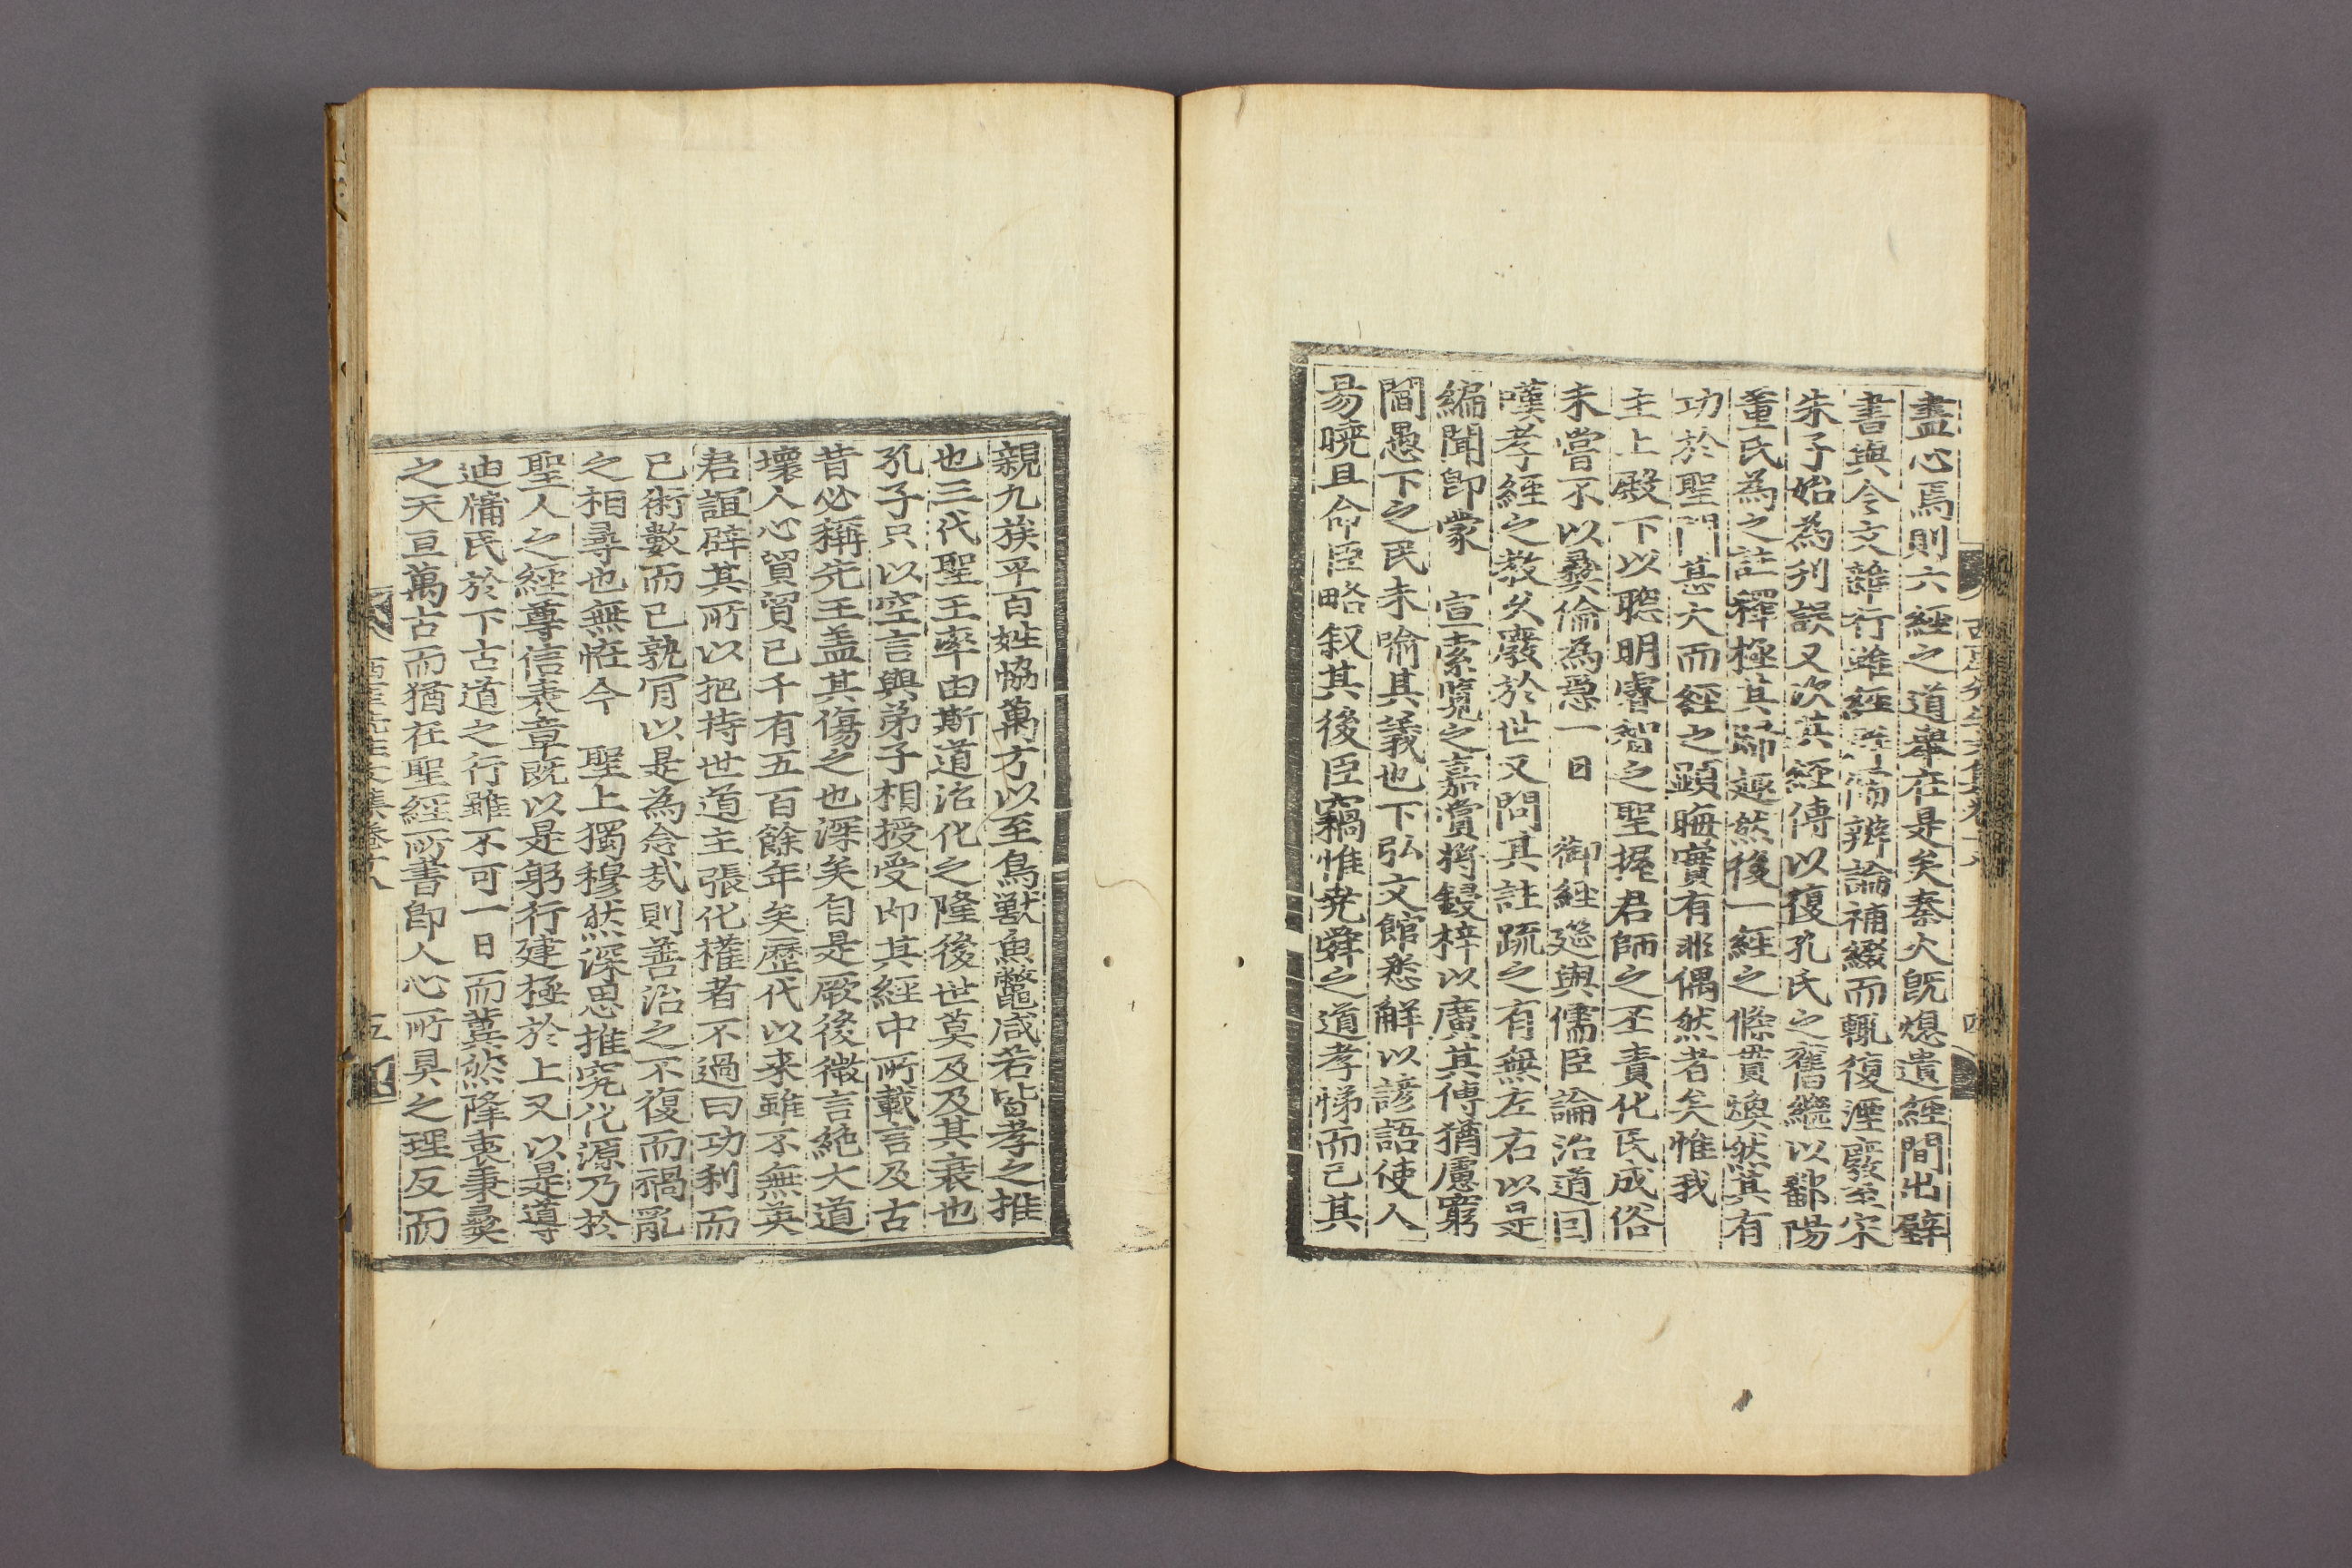 盡心焉則六經之道擧在是矣秦火旣熄遺經間出壁
書與今文雜行雖經辨論補綴而輒復湮廢至宋
朱子始爲刋誤又次其經傳以復孔氏之舊繼以鄱陽
董氏爲之註釋極其歸趣然後一經之條貫煥然其有
功於聖門甚大而經之顯晦實有非偶然者矣惟我
主上殿下以聰明睿智之聖握君師之丕責化民成俗
未嘗不以彝倫爲急一日 御經筵與儒臣論治道因
嘆孝經之敎久廢於世又問其註疏之有無左右以是
編聞卽蒙 宣索覽之嘉賞將鋟梓以廣其傳猶慮窮
閭愚下之民未喩其義也下弘文館悉解以諺語使人
易曉且命臣略叙其後臣竊惟堯舜之道孝悌而已其
四
親九族平百姓恊萬方以至鳥獸魚鼈咸若皆孝之推
也三代聖王率由斯道治化之隆後世莫及及其衰也
孔子只以空言與弟子相授受卽其經中所載言及古
昔必稱先王盖其傷之也深矣自是厥後微言絶大道
壞人心貿貿已千有五百餘年矣歷代以来雖不無英
君誼辟其所以把持世道主張化權者不過曰功利而
已術數而已孰肎以是爲念哉則善治之不復而禍亂
之相尋也無恠今 聖上獨穆然深思推究化源乃於
聖人之經尊信表章旣以是躬行建極於上又以是導
迪牖民於下古道之行雖不可一日而冀然降衷秉彝
之天亘萬古而猶在聖經所書卽人心所具之理反而
西厓先生文集卷十八
五